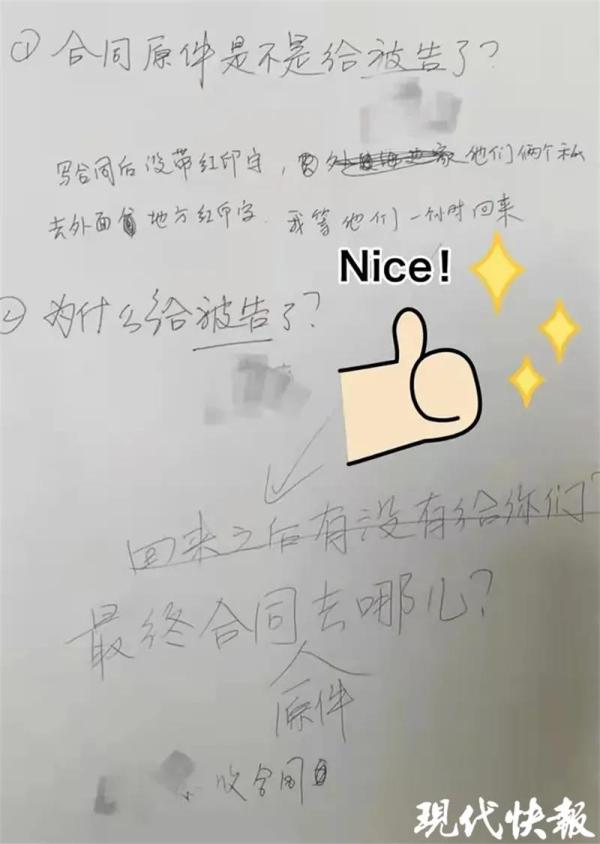 ① 合同原件是不是给被告了？
写合同后没带红印字，他们俩个私
去外面地方红印字．我等他们一小时回来
Nice!
② 为什么给被告了？
回来之后有没有给你们？
最终合同去哪儿？
原件
收合同
現代快報